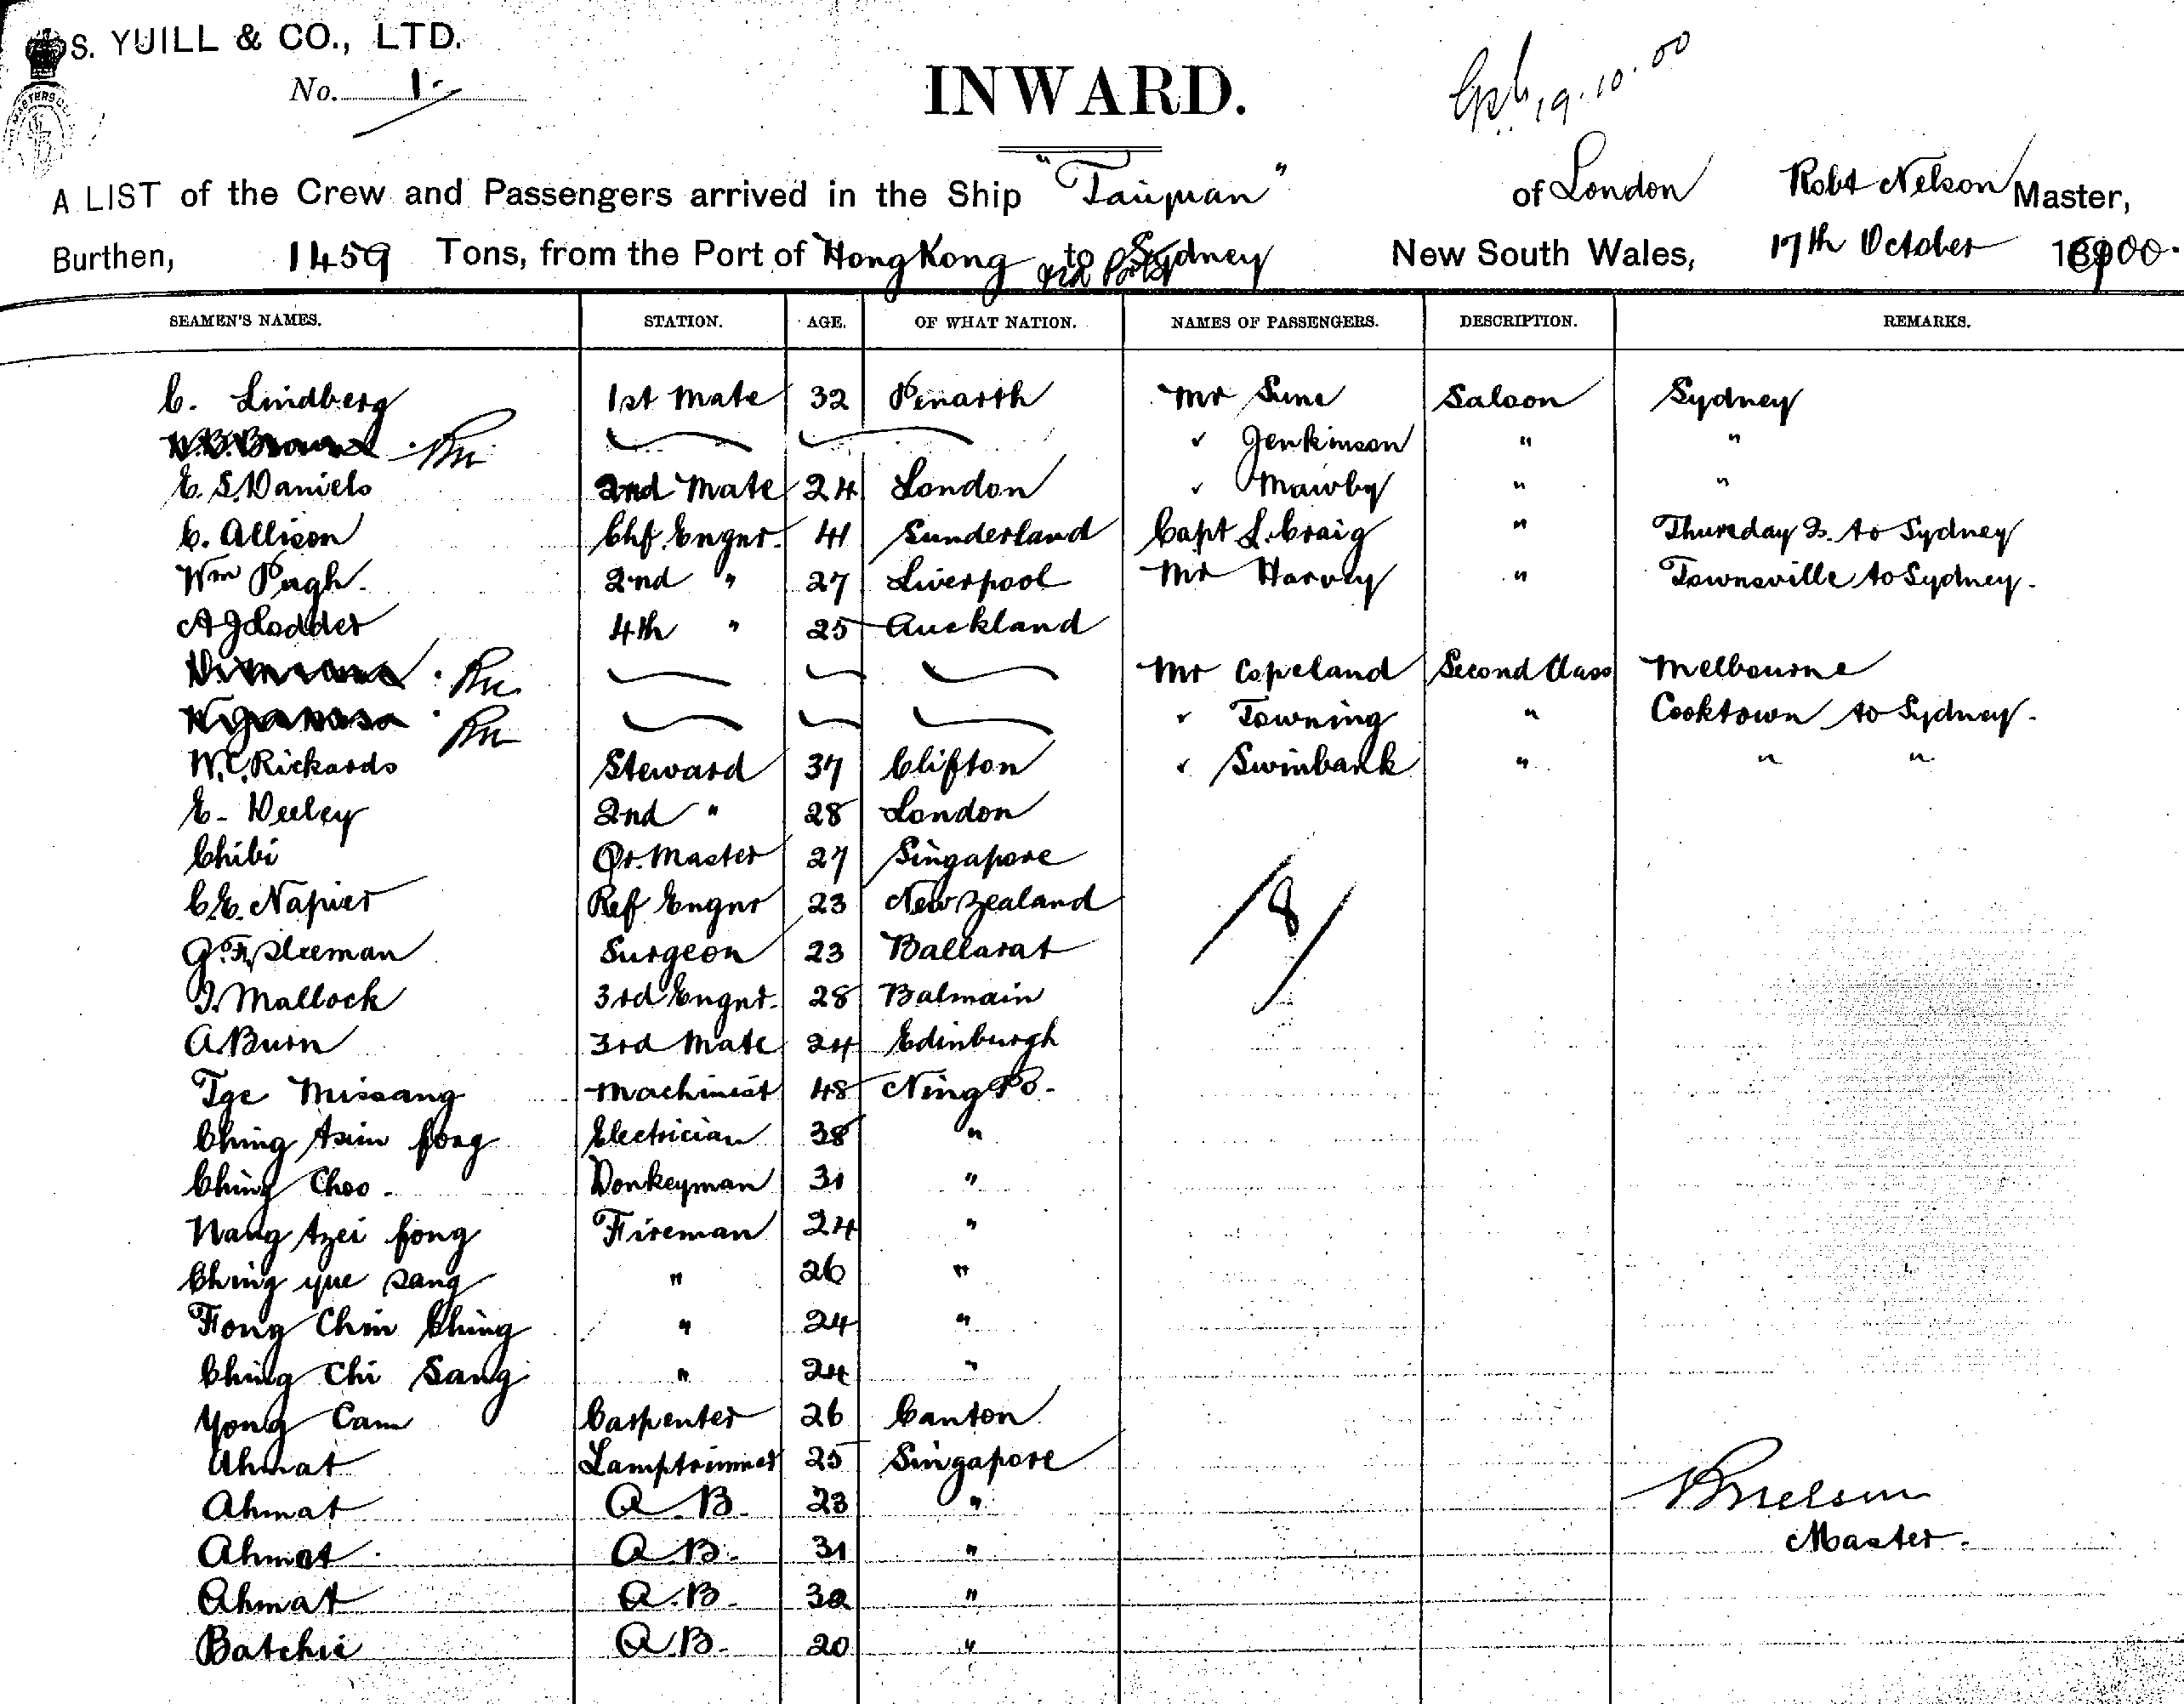 S. YUILL & CO., LTD.
No. 1.
INWARD.
19.10.00
A LIST of the Crew and Passengers arrived in the Ship "Taiyuan" of London Robt Nelson Master,
Burthen, 1459 Tons, from the Port of Hong Kong via Ports to Sydney New South Wales, 17th October 1900.
SEAMEN'S NAMES. STATION. AGE. OF WHAT NATION. NAMES OF PASSENGERS. DESCRIPTION. REMARKS.
C. Lindberg 1st Mate 32 Penarth Mr Sune Saloon Sydney
Jenkinson " "
E. S. Daniels 2nd Mate 24 London Mawby " "
C. Allison Chf. Engnr. 41 Sunderland Capt S. Craig " Thursday Is. to Sydney
Wm Pugh. 2nd " 27 Liverpool Mr Harvey " Townsville to Sydney.
A J Lodder 4th " 25 Auckland
Mr Copeland Second Class Melbourne
Towning " Cooktown to Sydney.
W. C. Rickards Steward 37 Clifton Swinbank " " "
E. Veeley 2nd " 28 London
Chibi Qr. Master 27 Singapore
C. E. Napier Ref Engnr 23 New Zealand
G. F. Sleeman Surgeon 23 Ballarat
8
J. Mallock 3rd Engnr. 28 Balmain
A Burn 3rd Mate 24 Edinburgh
Tge Missang Machinist 48 Ning Po.
Ching Asim fong Electrician 38 "
Ching Choo. Donkeyman 31 "
Wang Azei fong Fireman 24 "
Ching yue sang " 26 "
Fong Chin Ching " 24 "
Ching Chi Sang " 24 "
Yong Cam Carpenter 26 Canton
Ahmat Lamptrimmer 25 Singapore
Ahmat A. B. 23 "
Ahmat. A B. 31 "
Ahmat A. B. 32 "
Batchie A. B. 20 "
Nelson
Master.